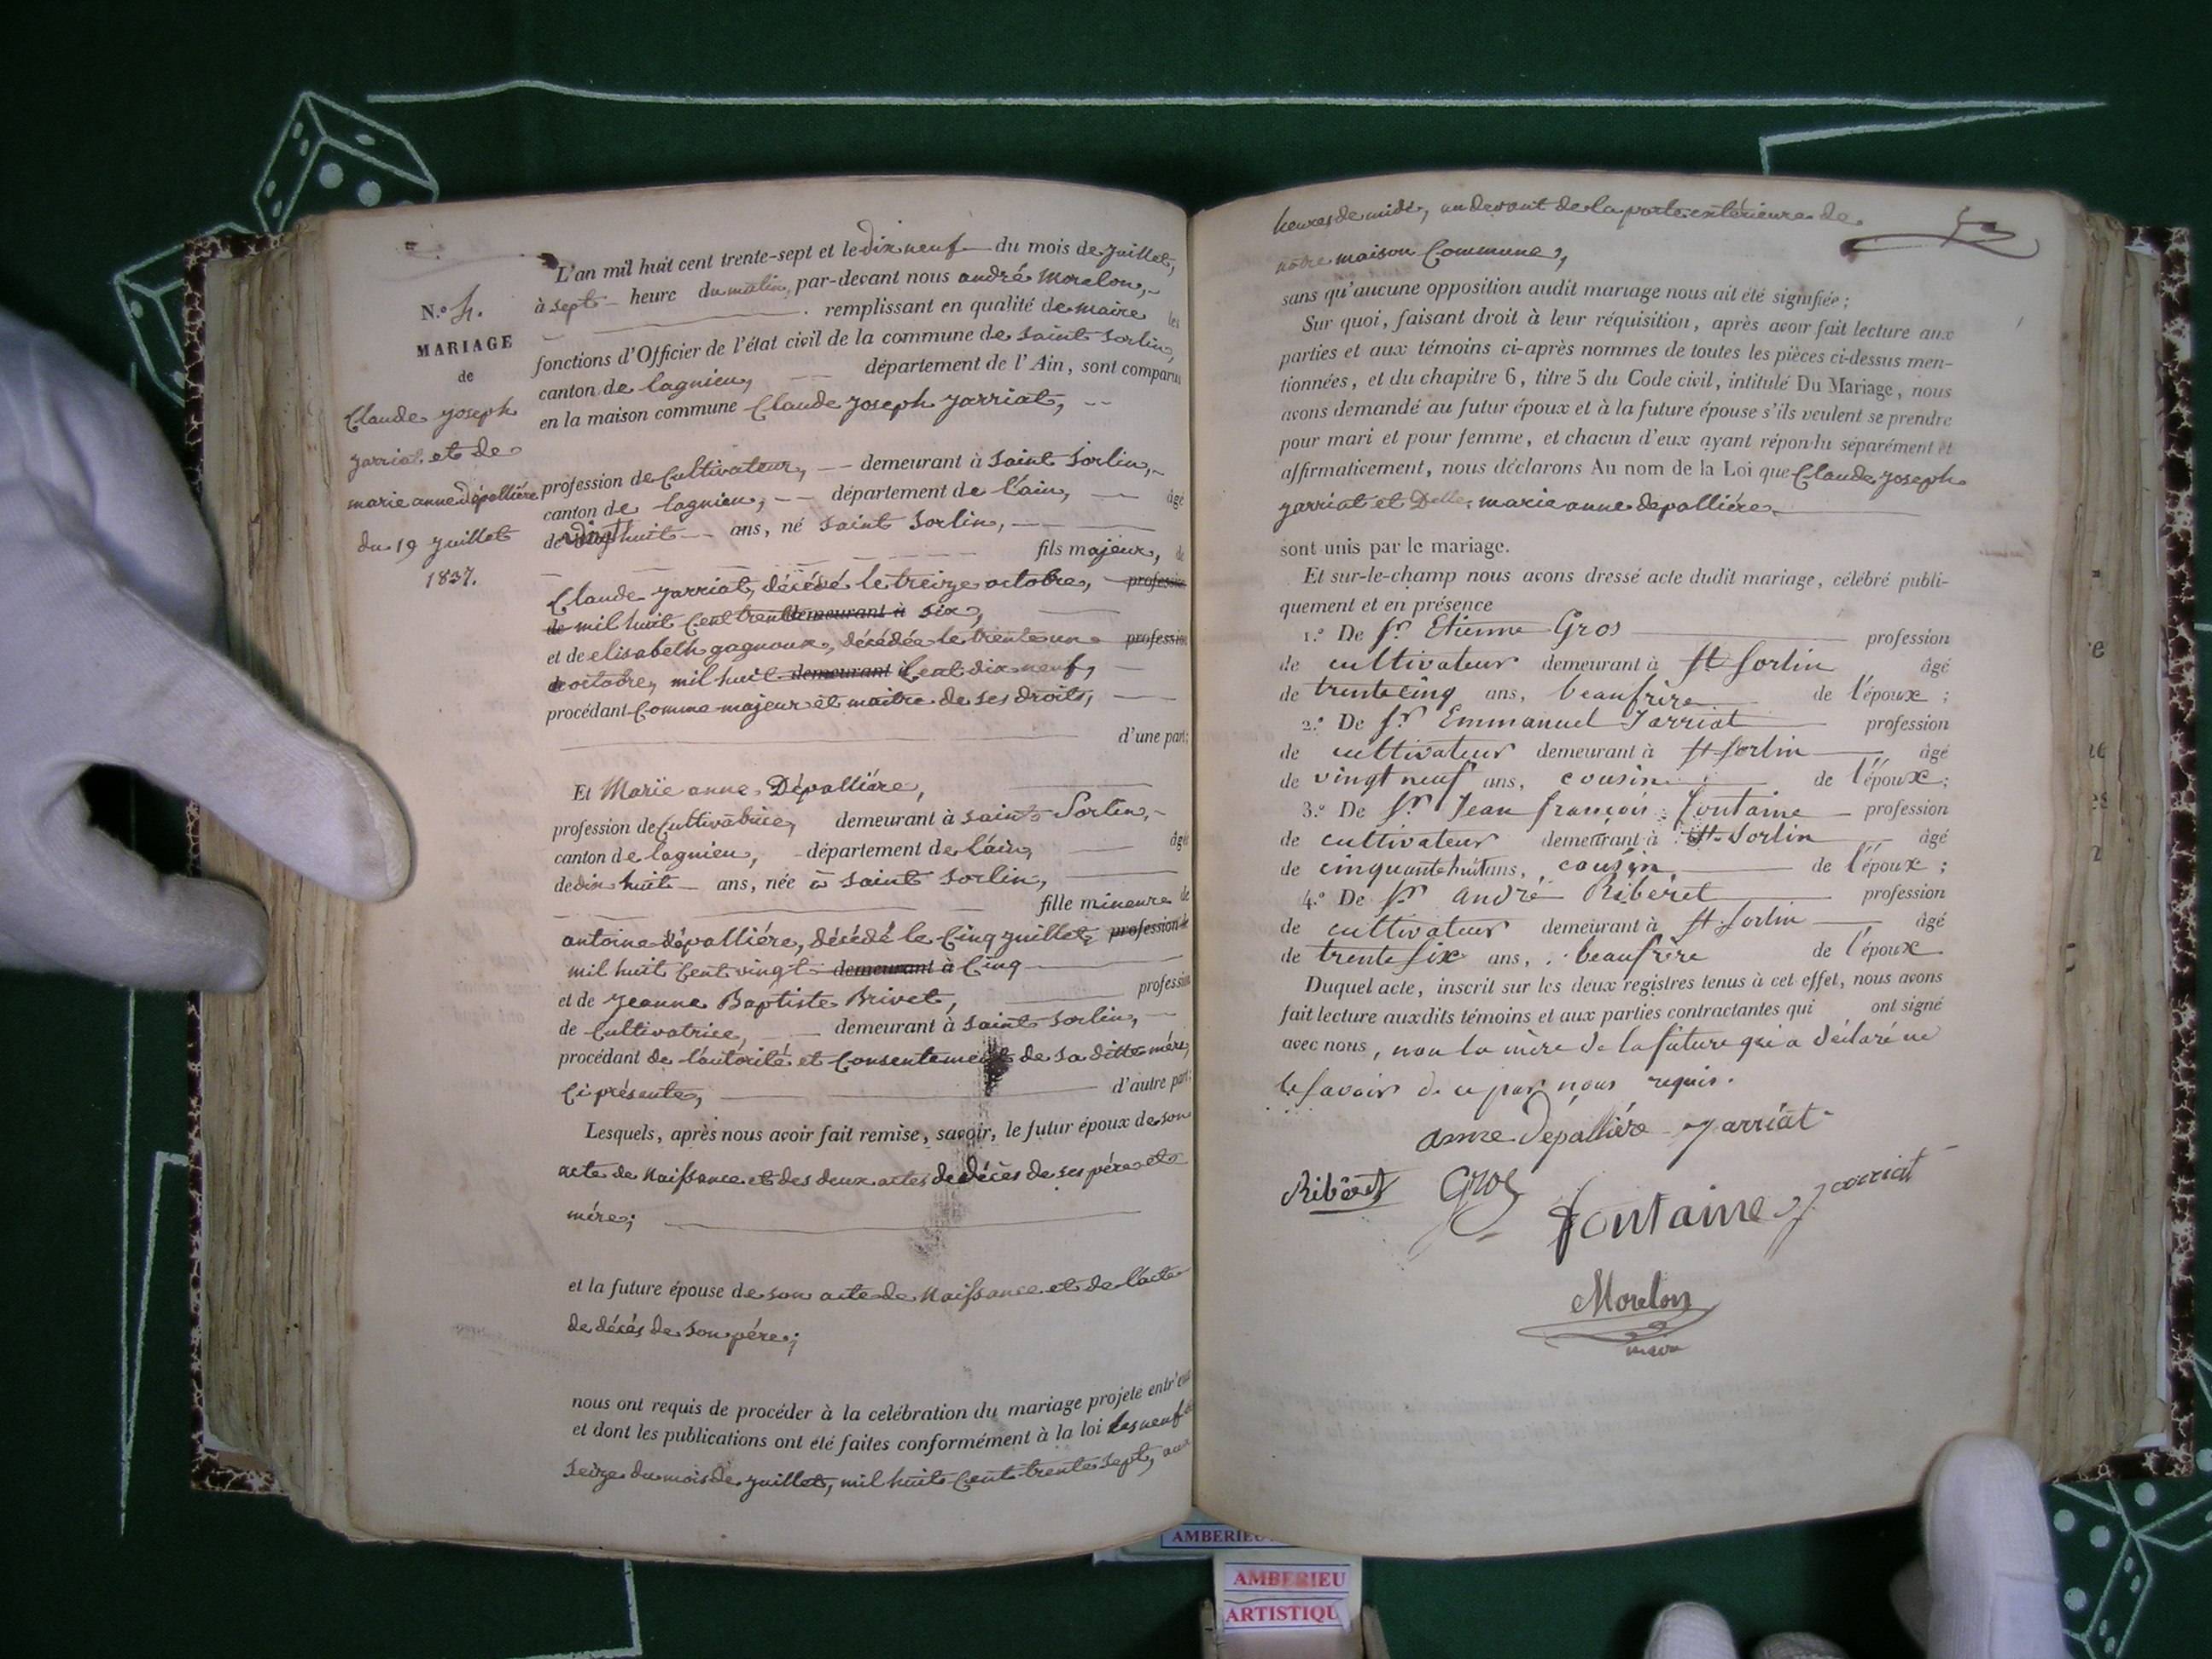 N.o 4.
MARIAGE
de
Claude Joseph
jarriat et de
marie anne dépallière
du 19 juillet
1837.
L'an mil huit cent trente-sept et le dix neuf du mois de juillet,
à sept heure du matin, par-devant nous andré Morelon,
remplissant en qualité de maire les
fonctions d'Officier de l'état civil de la commune de saint sorlin,
canton de lagnieu, département de l'Ain, sont comparus
en la maison commune Claude joseph jarriat,
profession de Cultivateur, demeurant à saint sorlin,
canton de lagnieu, département de l'ain, âgé
de vingt huit ans, né saint sorlin,
fils majeur, de
Claude jarriat, décédé le treize octobre, profession
de mil huit Cent trente demeurant à six,
et de elisabeth gagnoux, décédée le trente un profession
de octobre, mil huit demeurant à Cent dix neuf,
procédant Comme majeur et maitre de ses droits,
d'une part;
Et Marie anne Dépallière,
profession de Cultivatrice, demeurant à saint Sorlin,
canton de lagnieu, département de l'ain, âgée
de dix huit ans, née à saint sorlin,
fille mineure de
antoine dépallière, décédé le Cinq juillet, profession de
mil huit Cent vingt demeurant à Cinq
et de jeanne Baptiste Brivet, profession
de Cultivatrice, demeurant à saint sorlin,
procédant de l'autorité et Consentement de sa ditte mère,
Ci présente, d'autre part;
Lesquels, après nous avoir fait remise, savoir, le futur époux de son
acte de Naissance et des deux actes de décès de ses père et
mère;
et la future épouse de son acte de Naissance et de l'acte
de décés de son père;
nous ont requis de procéder à la celébration du mariage projeté entr'eux
et dont les publications ont été faites conformément à la loi les neuf et
seize du mois de juillet, mil huit Cent trente sept, aux
heures de midi, au devant de la porte extérieure de
notre maison Commune,
sans qu'aucune opposition audit mariage nous ait été signifiée;
Sur quoi, faisant droit à leur réquisition, après avoir fait lecture aux
parties et aux témoins ci-après nommes de toutes les pièces ci-dessus men-
tionnées, et du chapitre 6, titre 5 du Code civil, intitulé Du Mariage, nous
avons demandé au futur époux et à la future épouse s'ils veulent se prendre
pour mari et pour femme, et chacun d'eux ayant répondu séparément et
affirmativement, nous déclarons Au nom de la Loi que Claude joseph
jarriat et Delle. marie anne depallière
sont unis par le mariage.
Et sur-le-champ nous avons dressé acte dudit mariage, célébré publi-
quement et en présence
1.o De Sr. Etienne Gros profession
de cultivateur demeurant à St Sorlin âgé
de trente cinq ans, beaufrère de l'époux;
2.o De Sr. Emmanuel Jarriat profession
de cultivateur demeurant à St Sorlin âgé
de vingt neuf ans, cousin de l'époux;
3.o De Sr. Jean françois Fontaine profession
de cultivateur demeurant à St Sorlin âgé
de cinquante huit ans, cousin de l'époux;
4.o De Sr. andré Riberet profession
de cultivateur demeurant à St Sorlin âgé
de trente six ans, beaufrère de l'époux
Duquel acte, inscrit sur les deux registres tenus à cet effet, nous avons
fait lecture auxdits témoins et aux parties contractantes qui ont signé
avec nous, non la mère de la future qui a déclaré ne
le savoir de ce par nous requis.
anne dépallière jarriat
Riberet Gros Fontaine J. jarriat
Morelon
maire
AMBERIEU
AMBERIEU
ARTISTIQU